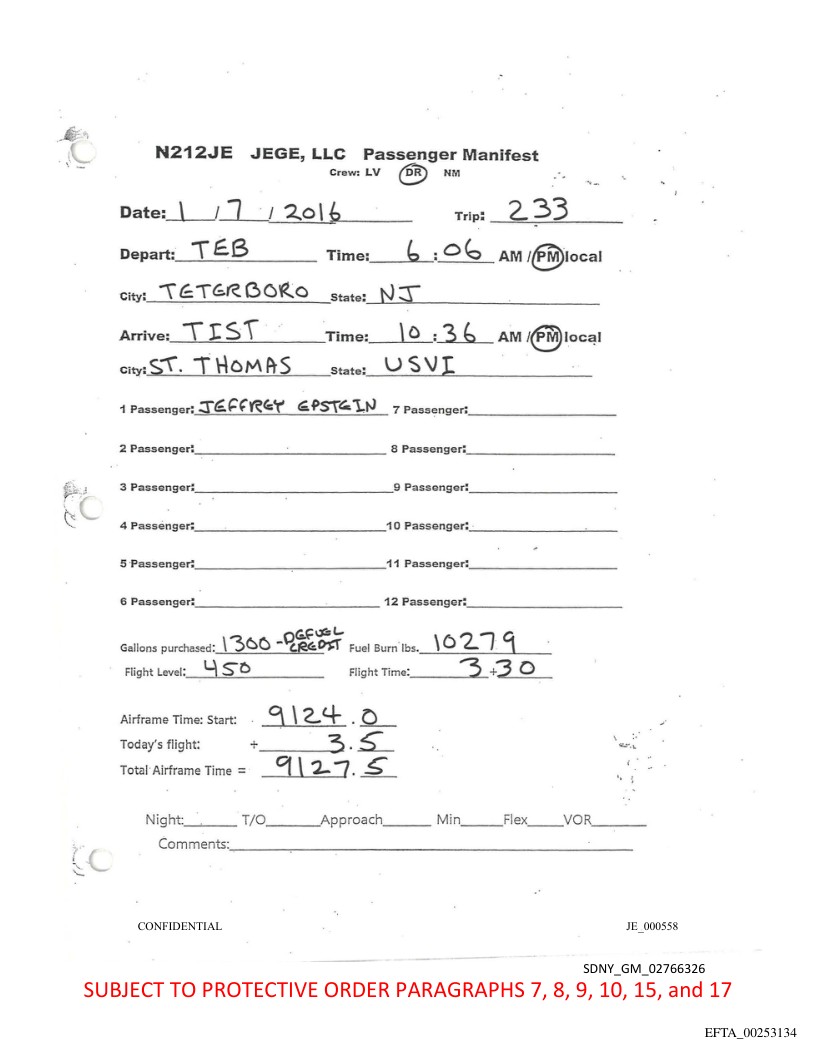 N212JE JEGE, LLC Passenger Manifest
Crew: LV DR NM
Date: 1 / 7 / 2016 Trip: 233
Depart: TEB Time: 6 : 06 AM / PM local
City: TETERBORO State: NJ
Arrive: TIST Time: 10 : 36 AM / PM local
City: ST. THOMAS State: USVI
1 Passenger: JEFFREY EPSTEIN 7 Passenger:
2 Passenger: 8 Passenger:
3 Passenger: 9 Passenger:
4 Passenger: 10 Passenger:
5 Passenger: 11 Passenger:
6 Passenger: 12 Passenger:
Gallons purchased: 1300 - DEFUEL CREDIT Fuel Burn lbs. 10279
Flight Level: 450 Flight Time: 3 + 30
Airframe Time: Start: 9124.0
Today's flight: + 3.5
Total Airframe Time = 9127.5
Night: T/O Approach Min Flex VOR
Comments:
CONFIDENTIAL JE_000558
SDNY_GM_02766326
SUBJECT TO PROTECTIVE ORDER PARAGRAPHS 7, 8, 9, 10, 15, and 17
EFTA_00253134